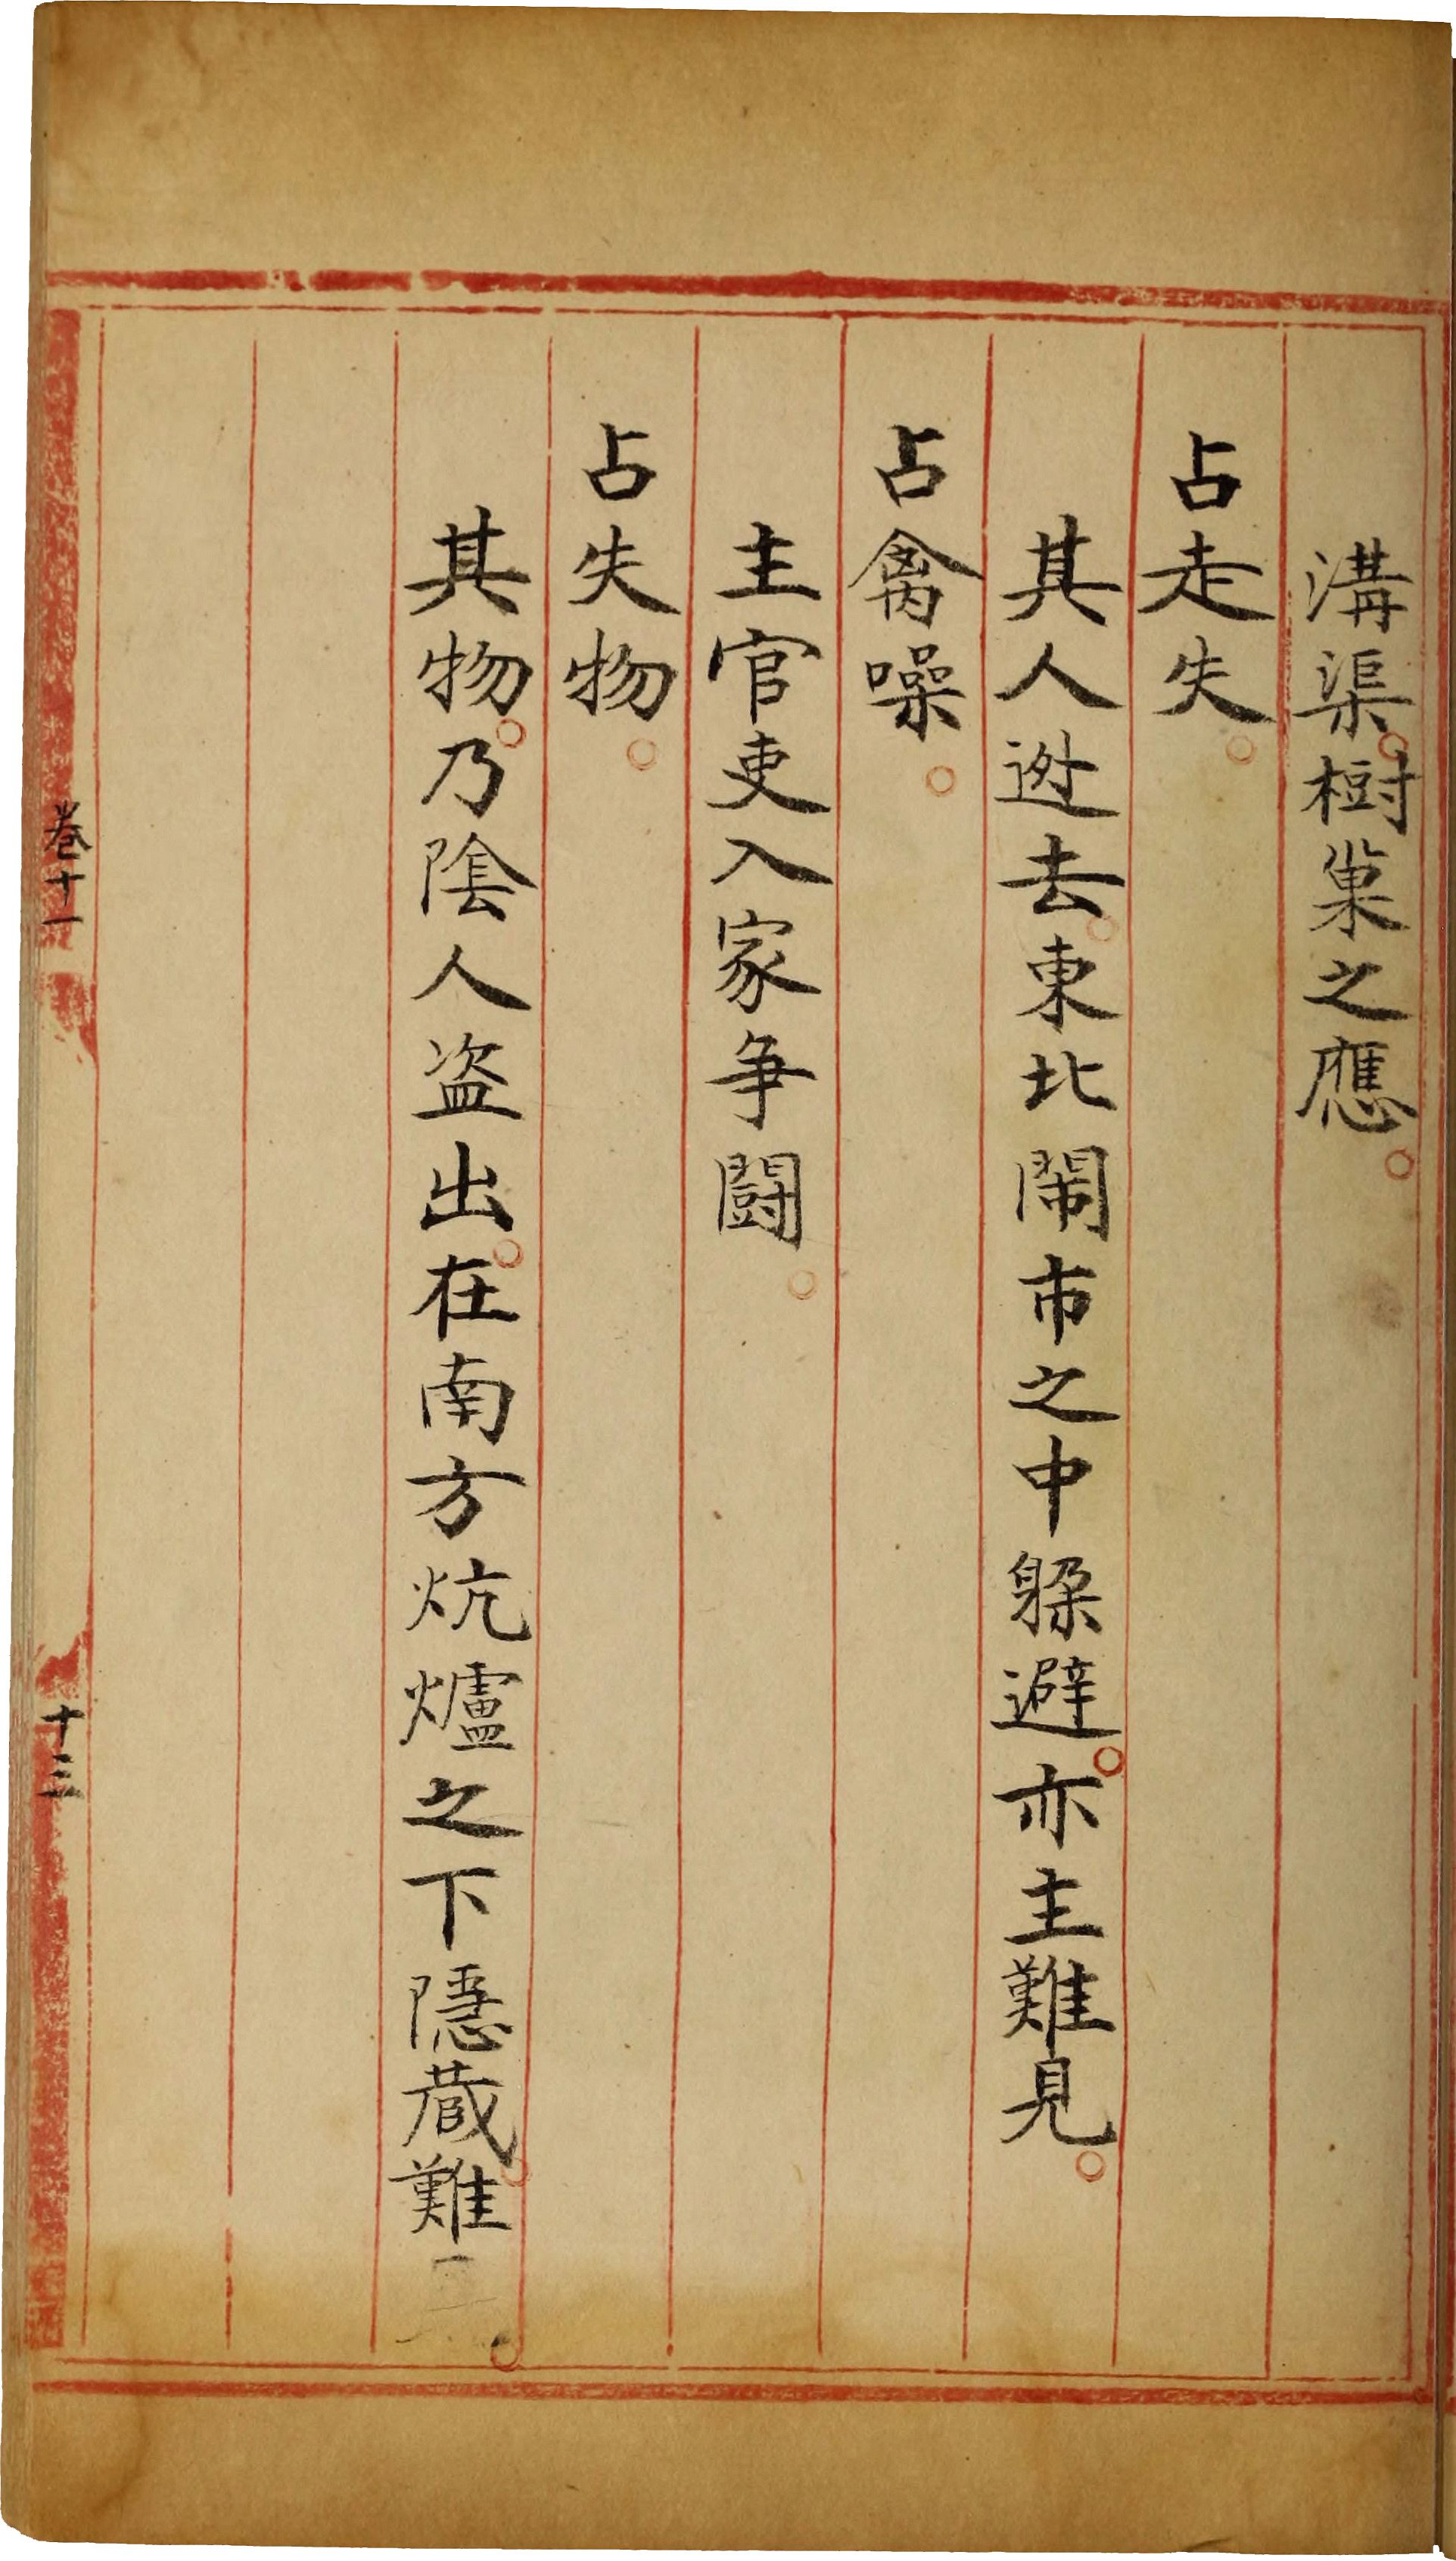 溝渠。樹巢之應。
占走失。
其人迯去。東北閙市之中躲避。亦主難見。
占禽噪。
主官吏入家争闘。
占失物。
其物。乃隂人盗出。在南方炕爐之下隱藏。難
卷十一
十三